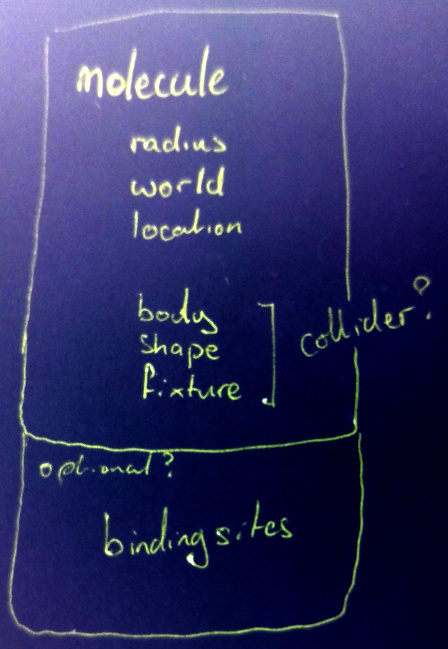 molecule
radius
world
location
body
shape
fixture
collider?
optional?
binding sites